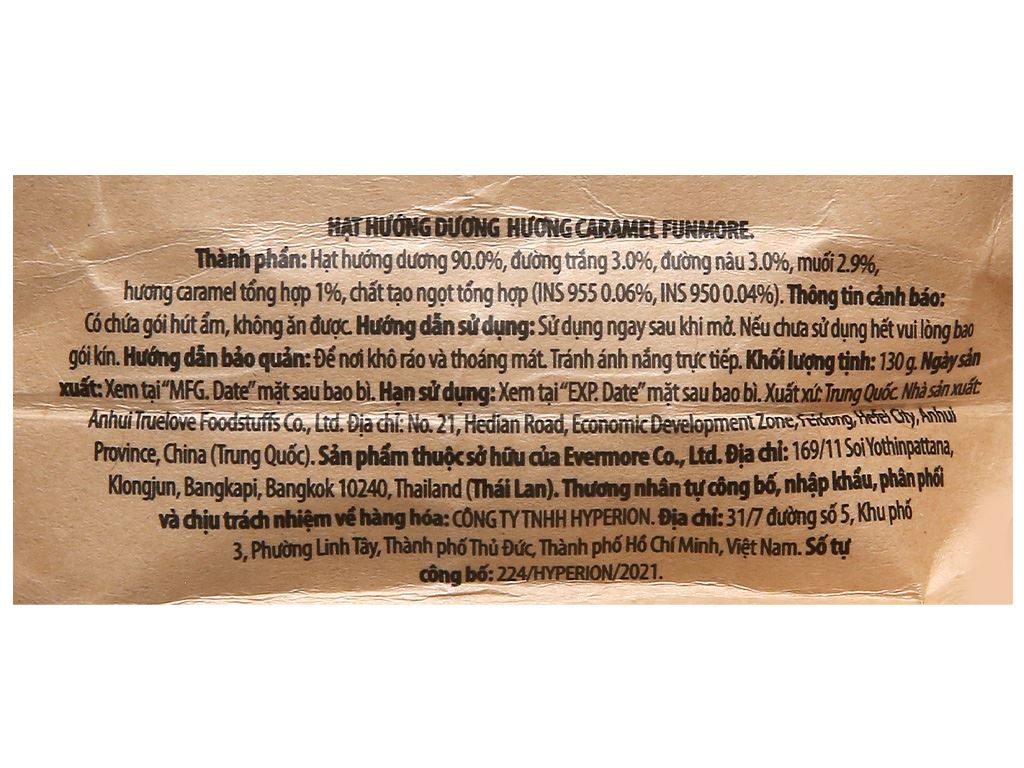 HẠT HƯỚNG DƯƠNG HƯƠNG CARAMEL FUNMORE.
Thành phần: Hạt hướng dương 90.0%, đường trắng 3.0%, đường nâu 3.0%, muối 2.9%,
hương caramel tổng hợp 1%, chất tạo ngọt tổng hợp (INS 955 0.06%, INS 950 0.04%). Thông tin cảnh báo:
Có chứa gói hút ẩm, không ăn được. Hướng dẫn sử dụng: Sử dụng ngay sau khi mở. Nếu chưa sử dụng hết vui lòng bao
gói kín. Hướng dẫn bảo quản: Để nơi khô ráo và thoáng mát. Tránh ánh nắng trực tiếp. Khối lượng tịnh: 130 g. Ngày sản
xuất: Xem tại "MFG. Date" mặt sau bao bì. Hạn sử dụng: Xem tại "EXP. Date" mặt sau bao bì. Xuất xứ: Trung Quốc. Nhà sản xuất:
Anhui Truelove Foodstuffs Co., Ltd. Địa chỉ: No. 21, Hedian Road, Economic Development Zone, Feidong, Hefei City, Anhui
Province, China (Trung Quốc). Sản phẩm thuộc sở hữu của Evermore Co., Ltd. Địa chỉ: 169/11 Soi Yothinpattana,
Klongjun, Bangkapi, Bangkok 10240, Thailand (Thái Lan). Thương nhân tự công bố, nhập khẩu, phân phối
và chịu trách nhiệm về hàng hóa: CÔNG TY TNHH HYPERION. Địa chỉ: 31/7 đường số 5, Khu phố
3, Phường Linh Tây, Thành phố Thủ Đức, Thành phố Hồ Chí Minh, Việt Nam. Số tự
công bố: 224/HYPERION/2021.